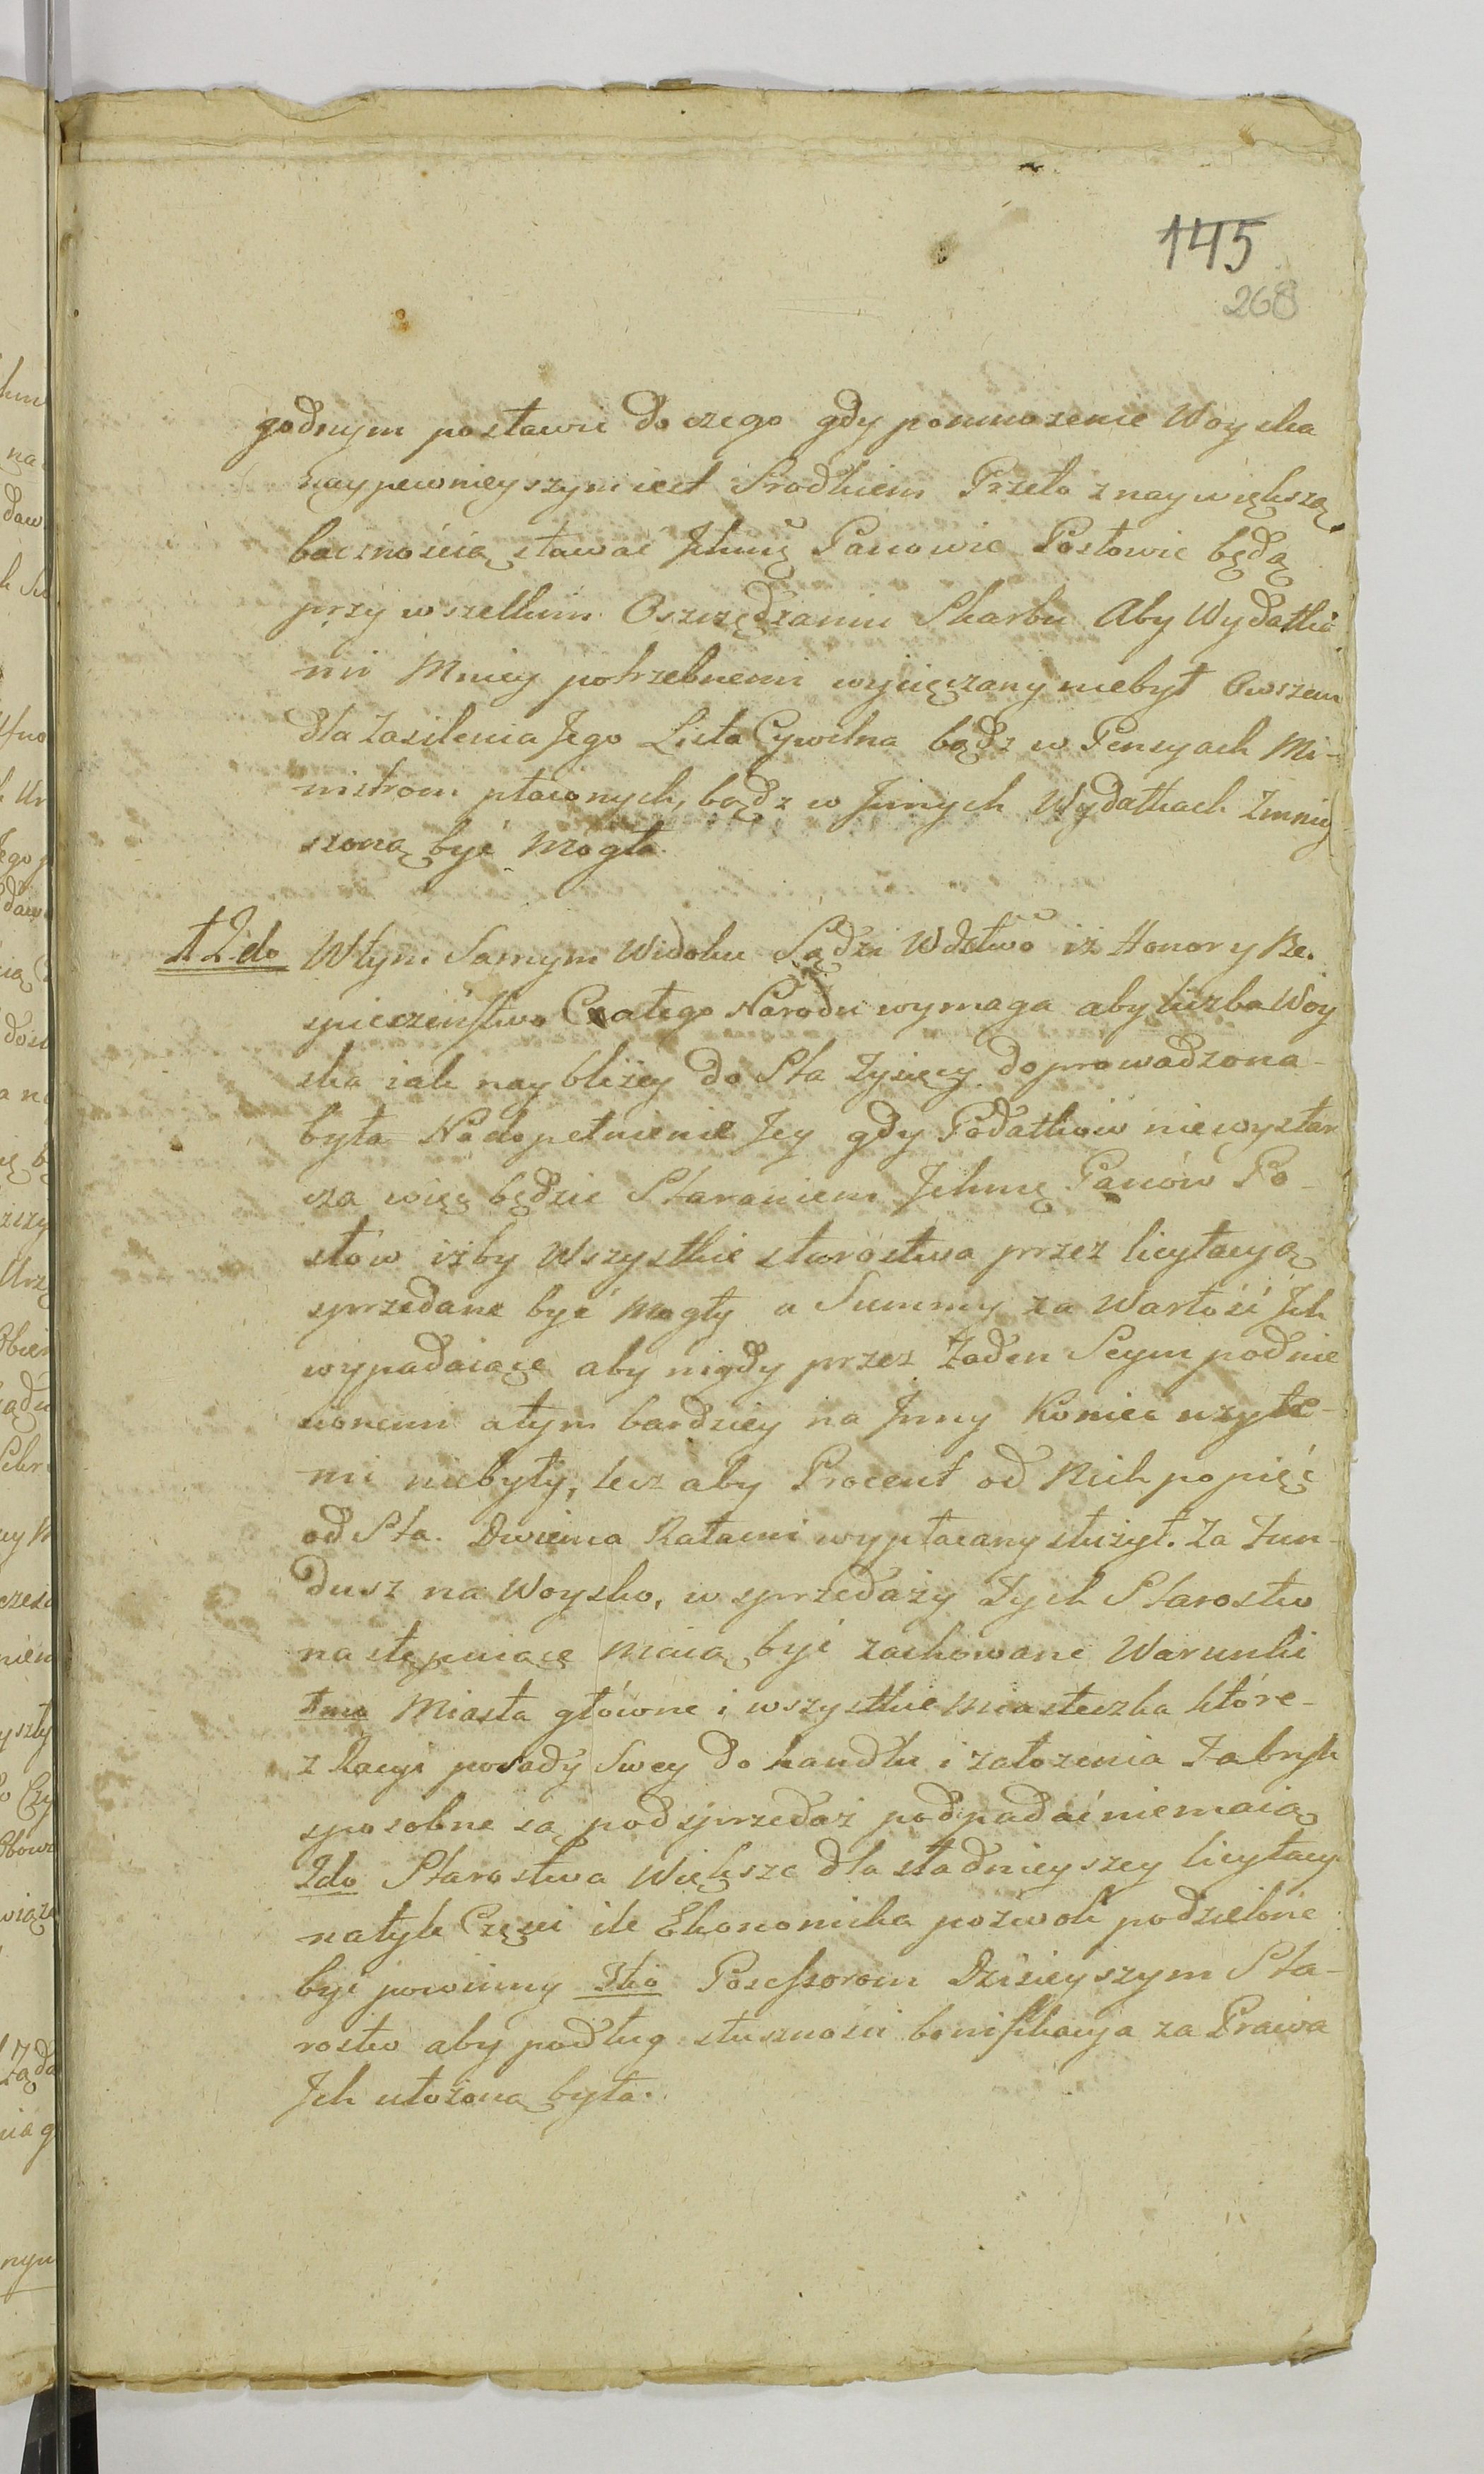 145
268
godnym postawić do czego gdy pomnożenie Woyska
naypewnieyszym iest Srodkiem Przeto z naywiększą
bacznością stawać Jchmę Panowie Posłowie będą
przy wszelkim Oszczędzaniu Skarbu Aby Wydatka
mi Mniey potrzebnemi wycięczany niebył Owszem
dla Zasilenia Jego Lista Cywilna bądz w Pensyach Mi-
nistrom płaconych, bądz w Jnnych Wydatkach Zmniey
szoną być mogła.
12do Wtym Samym Widoku Sądzi Wdztwo iż Honor y Be.
spieczeństwo Całego Narodu wymaga aby liczba Woy
ska iak naybliżey do Sta Tysięcy doprowadzona-
była Na dopełnienie Jey gdy Podatków niewystar
cza więc będzie Staraniem Jchmę Panów Po-
słów iżby Wszystkie starostwa przez licytacyą
sprzedane być mogły a Summy za Wartość Jch
wypadaiące aby nigdy przez Zaden Seym podnie
sionemi atym bardziey na Jnny Koniec użyte-
mi niebyły, lecz aby Procent od Nich po pięć
od Sta. Dwiema Ratami wypłacany służył. Za Fun-
dusz na Woysko, w sprzedaży Tych Starostw
nastepuiące maią być zachowane Warunki
1mo Miasta główne i wszystkie miasteczka które-
z Racyi posady Swey do handlu i założenia Fabryk
sposobne są pod sprzedaż podpadać niemaią
2do Starostwa Większe dla sładnieyszey licytacyi
natyle Częsci ile Ekonomika pozwoli podzielone
być powinny 3tio Possessorom Dzisieyszym Sta-
rostw aby podług słuszności bonifikacya za Prawa
Jch ułożoną była.